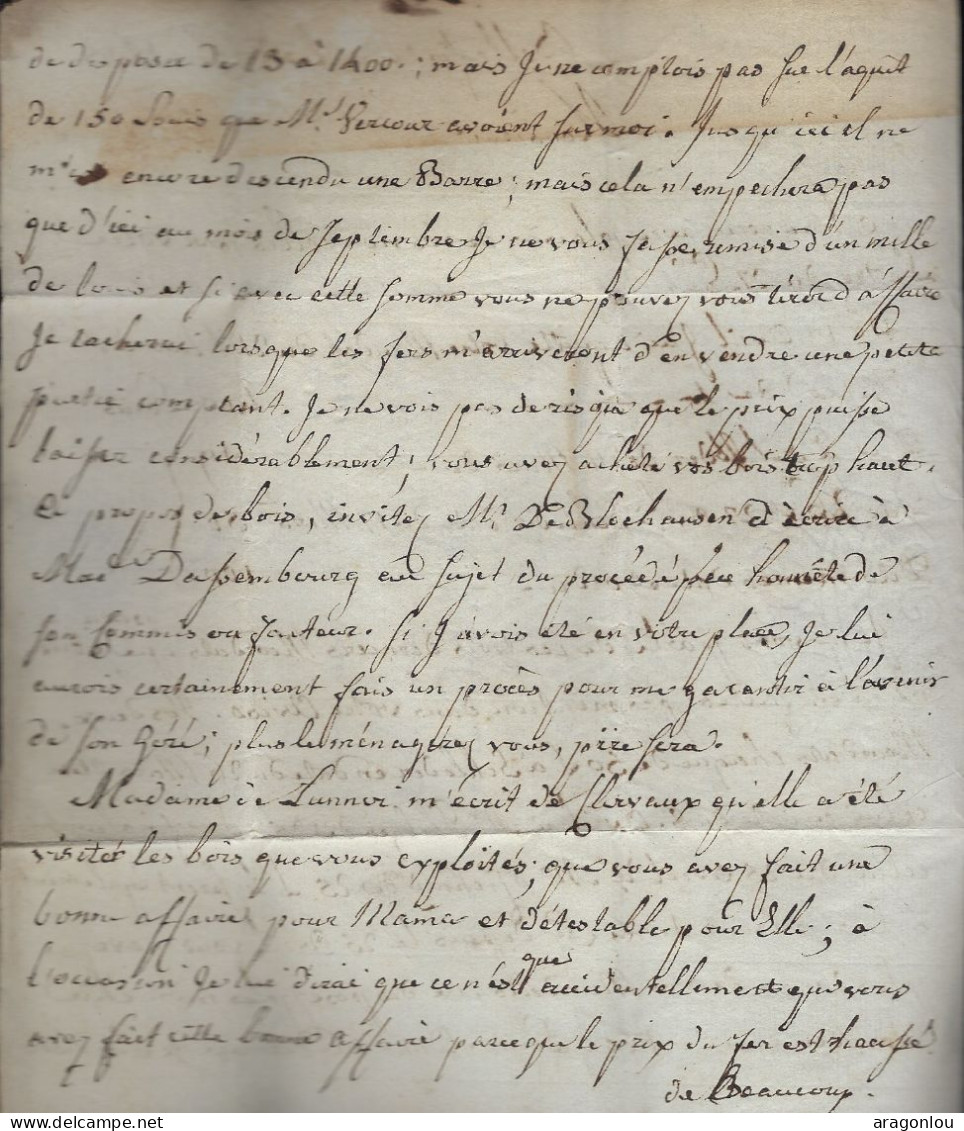 de disposer de 13 à 1400.; mais Je ne comptois pas sur l'aquit
de 150 Louis que Mr. Vercour avoient sur moi. Jusqu'ici il ne
m'est encore descendu une Barre; mais cela n'empechera pas
que d'ici au mois de Septembre Je ne vous fasse remise d'un mille
de louis et si avec cette somme vous ne pouvez vous tirer d'áffaire
Je tacherai lorsque les fers m'arriveront d'en vendre une petite
partie comptant. Je ne vois pas que le prix puisse
baisser considérablement; vous avez acheté vos bois trop haut.
a propos de bois, invitez Mr. De Blochausen d'écrire à
Made Dassembourg au sujet du procédé peu honnête de
son Commis ou facteur. Si J'avois été en votre place, Je lui
aurois certainement fais un procès pour me garantir à l'avenir
de son ; plus le ménagerez vous, pire sera.
Madame de Lannoi m'écrit de Clervaux qu'elle a été
visiter les bois que vous exploités; que vous avez fait une
bonne affaire pour Mama et détestable pour Elle; à
l'occasion Je lui dirai que ce n'est que accidentellement que vous
avez fait cette bonne affaire parceque le prix du fer est haussé
de Beaucoup.
aragonlou